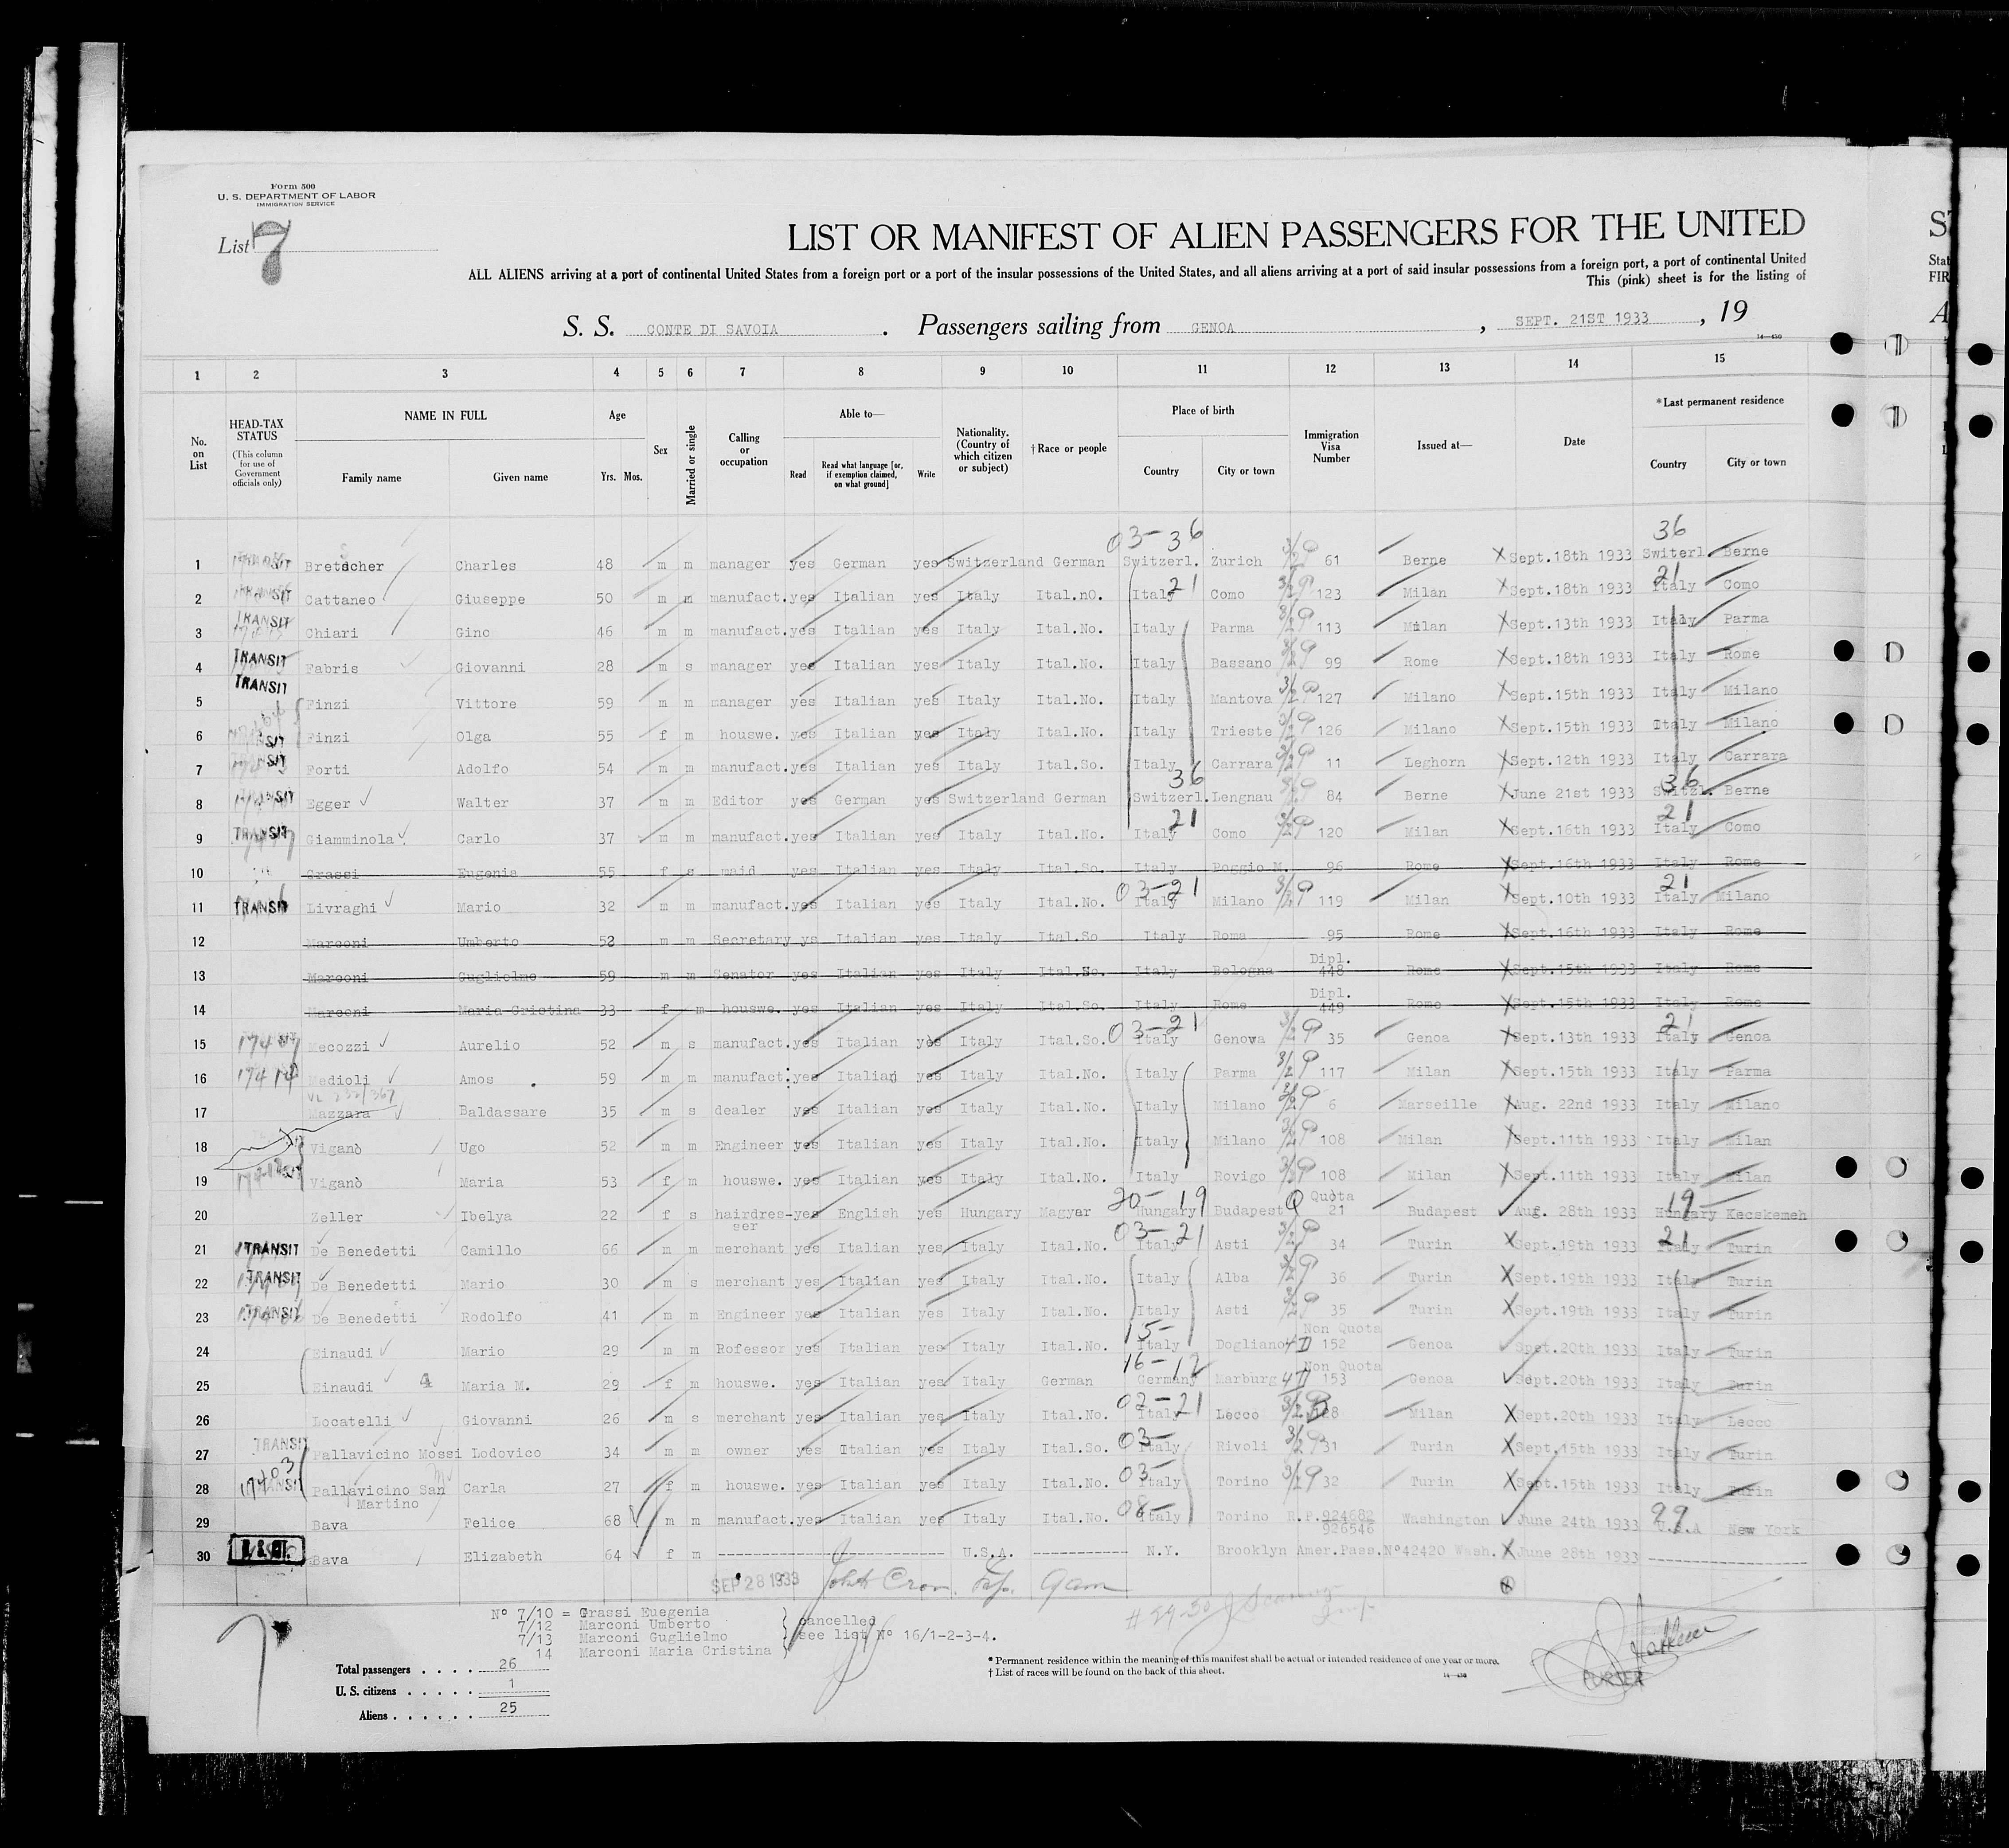 Form 500
U. S. DEPARTMENT OF LABOR
IMMIGRATION SERVICE
List 7
LIST OR MANIFEST OF ALIEN PASSENGERS FOR THE UNITED
ALL ALIENS arriving at a port of continental United States from a foreign port or a port of the insular possessions of the United States, and all aliens arriving at a port of said insular possessions from a foreign port, a port of continental United
This (pink) sheet is for the listing of
S. S. CONTE DI SAVOIA . Passengers sailing from GENOA , SEPT. 21ST 1933 , 19
14—430
1 2 3 4 5 6 7 8 9 10 11 12 13 14 15
No. on List
HEAD-TAX STATUS (This column for use of Government officials only)
NAME IN FULL Family name Given name
Age Yrs. Mos.
Sex
Married or single
Calling or occupation
Able to— Read Read what language [or, if exemption claimed, on what ground] Write
Nationality. (Country of which citizen or subject)
† Race or people
Place of birth Country City or town
Immigration Visa Number
Issued at—
Date
*Last permanent residence Country City or town
03-36 36
1 TRANSIT Bretscher Charles 48 m m manager yes German yes Switzerland German Switzerl. Zurich 3/2 P 61 Berne Sept.18th 1933 Switerl. Berne
2 TRANSIT Cattaneo Giuseppe 50 m m manufact. yes Italian yes Italy Ital.nO. Italy 21 Como 3/2 P 123 Milan Sept.18th 1933 Italy 21 Como
3 TRANSIT Chiari Gino 46 m m manufact. yes Italian yes Italy Ital.No. Italy Parma 3/2 P 113 Milan Sept.13th 1933 Italy Parma
4 TRANSIT Fabris Giovanni 28 m s manager yes Italian yes Italy Ital.No. Italy Bassano 3/2 P 99 Rome Sept.18th 1933 Italy Rome
5 TRANSIT Finzi Vittore 59 m m manager yes Italian yes Italy Ital.No. Italy Mantova 3/2 P 127 Milano Sept.15th 1933 Italy Milano
6 TRANSIT Finzi Olga 55 f m houswe. yes Italian yes Italy Ital.No. Italy Trieste 3/2 P 126 Milano Sept.15th 1933 Italy Milano
7 TRANSIT Forti Adolfo 54 m m manufact. yes Italian yes Italy Ital.So. Italy Carrara 3/2 P 11 Leghorn Sept.12th 1933 Italy Carrara
8 TRANSIT Egger Walter 37 m m Editor yes German yes Switzerland German Switzerl. 36 Lengnau 3/2 P 84 Berne June 21st 1933 Switzl. 36 Berne
9 TRANSIT Giamminola Carlo 37 m m manufact. yes Italian yes Italy Ital.No. Italy 21 Como 3/2 P 120 Milan Sept.16th 1933 Italy 21 Como
10 Grassi Eugenia 55 f s maid yes Italian yes Italy Ital.So. Italy Poggio M. 96 Rome Sept.16th 1933 Italy Rome
11 TRANSIT Livraghi Mario 32 m m manufact. yes Italian yes Italy Ital.No. 03-21 Italy Milano 3/2 P 119 Milan Sept.10th 1933 21 Italy Milano
12 Marconi Umberto 52 m m Secretary ys Italian yes Italy Ital.So Italy Roma 95 Rome Sept.16th 1933 Italy Rome
13 Marconi Guglielmo 59 m m Senator yes Italian yes Italy Ital.No. Italy Bologna Dipl. 448 Rome Sept.15th 1933 Italy Rome
14 Marconi Maria Cristina 33 f m houswe. yes Italian yes Italy Ital.So. Italy Rome Dipl. 449 Rome Sept.15th 1933 Italy Rome
15 Mecozzi Aurelio 52 m s manufact. yes Italian yes Italy Ital.So. 03-21 Italy Genova 3/2 P 35 Genoa Sept.13th 1933 21 Italy Genoa
16 17414 Medioli Amos 59 m m manufact. yes Italian yes Italy Ital.No. Italy Parma 3/2 P 117 Milan Sept.15th 1933 Italy Parma
17 Mazzara Baldassare 35 m s dealer yes Italian yes Italy Ital.No. Italy Milano 3/2 P 6 Marseille Aug. 22nd 1933 Italy Milano
18 Viganò Ugo 52 m m Engineer yes Italian yes Italy Ital.No. Italy Milano 3/2 P 108 Milan Sept.11th 1933 Italy Milan
19 Viganò Maria 53 f m houswe. yes Italian yes Italy Ital.No. Italy Rovigo 3/2 P 108 Milan Sept.11th 1933 Italy Milan
20 Zeller Ibelya 22 f s hairdres-ser yes English yes Hungary Magyar 20-19 Hungary Budapest Q Quota 21 Budapest Aug. 28th 1933 19 Hungary Kecskemeh
21 TRANSIT De Benedetti Camillo 66 m m merchant yes Italian yes Italy Ital.No. 03-21 Italy Asti 3/2 P 34 Turin Sept.19th 1933 21 Italy Turin
22 TRANSIT De Benedetti Mario 30 m s merchant yes Italian yes Italy Ital.No. Italy Alba 3/2 P 36 Turin Sept.19th 1933 Italy Turin
23 TRANSIT De Benedetti Rodolfo 41 m m Engineer yes Italian yes Italy Ital.No. Italy Asti 3/2 P 35 Turin Sept.19th 1933 Italy Turin
24 Einaudi Mario 29 m m Rofessor yes Italian yes Italy Ital.No. 15- Italy Dogliano 4 D Non Quota 152 Genoa Sept.20th 1933 Italy Turin
25 Einaudi Maria M. 29 f m houswe. yes Italian yes Italy German 16-12 Germany Marburg 4 D Non Quota 153 Genoa Sept.20th 1933 Italy Turin
26 Locatelli Giovanni 26 m s merchant yes Italian yes Italy Ital.No. 03-21 Italy Lecco 3/2 128 Milan Sept.20th 1933 Italy Lecco
27 TRANSIT Pallavicino Mossi Lodovico 34 m m owner yes Italian yes Italy Ital.So. 03- Italy Rivoli 3/2 P 31 Turin Sept.15th 1933 Italy Turin
28 17403 TRANSIT Pallavicino San Martino Carla 27 f m houswe. yes Italian yes Italy Ital.No. 03- Italy Torino 3/2 P 32 Turin Sept.15th 1933 Italy Turin
29 Bava Felice 68 m m manufact. yes Italian yes Italy Ital.No. 08- Italy Torino R.P. 924682 926546 Washington June 24th 1933 99 U.S.A New York
30 Bava Elizabeth 64 f m U.S.A. N.Y. Brooklyn Amer.Pass.Nº42420 Wash. June 28th 1933
SEP 28 1933
Nº 7/10 = Grassi Euegenia
7/12 Marconi Umberto
7/13 Marconi Guglielmo
14 Marconi Maria Cristina
cancelled
see list Nº 16/1-2-3-4.
Total passengers . . . . 26
U. S. citizens . . . . . 1
Aliens . . . . . . 25
* Permanent residence within the meaning of this manifest shall be actual or intended residence of one year or more.
† List of races will be found on the back of this sheet.
14—430
PURSER
7